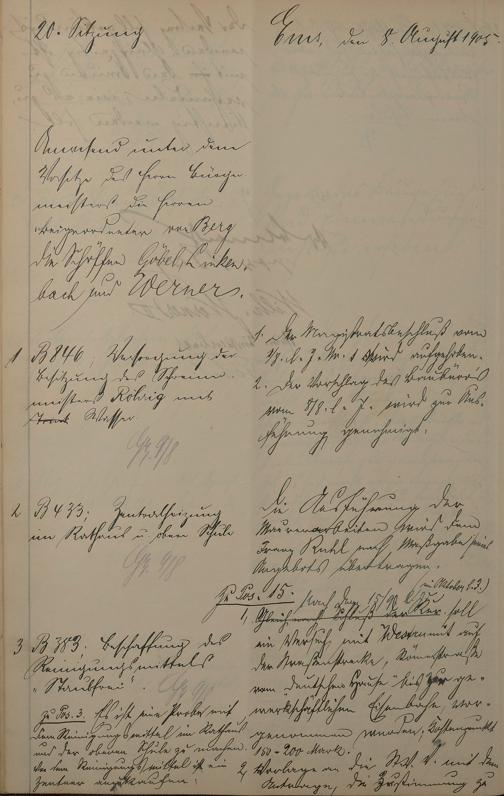 20. Sitzung
Ems, den 8. August 1905.
Anwesend unter dem
Vorsitze des Herrn Bürger-
meisters die Herren
Beigeordneter von Berg
die Schöffen Göbel, Linken-
bach und Werners.
1 B 846. Versorgung der
Besitzung des Schreiner-
meisters Röhrig mit
Wasser
1. Der Magistratsbeschluß vom
wird aufgehoben.
2. Der Vorschlag des Baubüros
vom 8/8. l. J. wird zur Aus-
führung genehmigt.
2 B 433. Zentralheizung
im Rathaus u. obere Schule
Die Ausführung der
Maurerarbeiten wird dem
Franz nach Maßgabe seines
Angebots übertragen.
3 B 383. Beschaffung des
Reinigungsmittels
"Staubfrei".
zu Pos. 3. Es ist eine Probe mit
dem Reinigungsmittel im Rathaus
und der oberen Schule zu machen.
Von dem Reinigungsmittel ist ein
Zentner anzukaufen.
Zu Pos. 15.
Nach dem 15/9
(im Oktober l. J.)
1, Gleich nach Schluß der Kur soll
ein Versuch mit Westrumit auf
der Straßenstrecke, Römerstraße
vom "Deutschen Hause" bis zur ge-
werkschaftlichen Eisenbahn, vor-
genommen werden, Kostenpunkt
150-200 Mark.
2, Vorlage an die St. V. V. mit dem
die Zustimmung zu